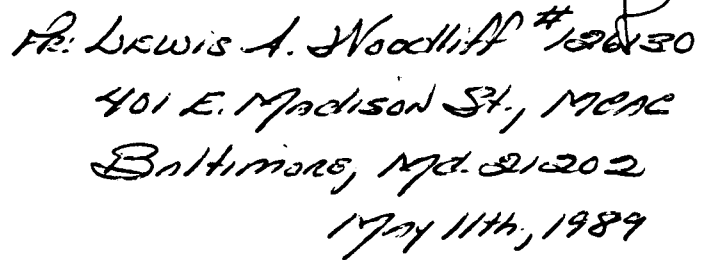 FR: Lewis A. Woodliff #126130
401 E. Madison St., MCAC
Baltimore, Md. 21202
May 11th, 1989